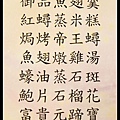 御品魚翅羹
紅蟳蒸米糕
焗烤帝王蟳
魚翅燉雞湯
蠔油蒸石斑
石榴花
富貴元蹄寶